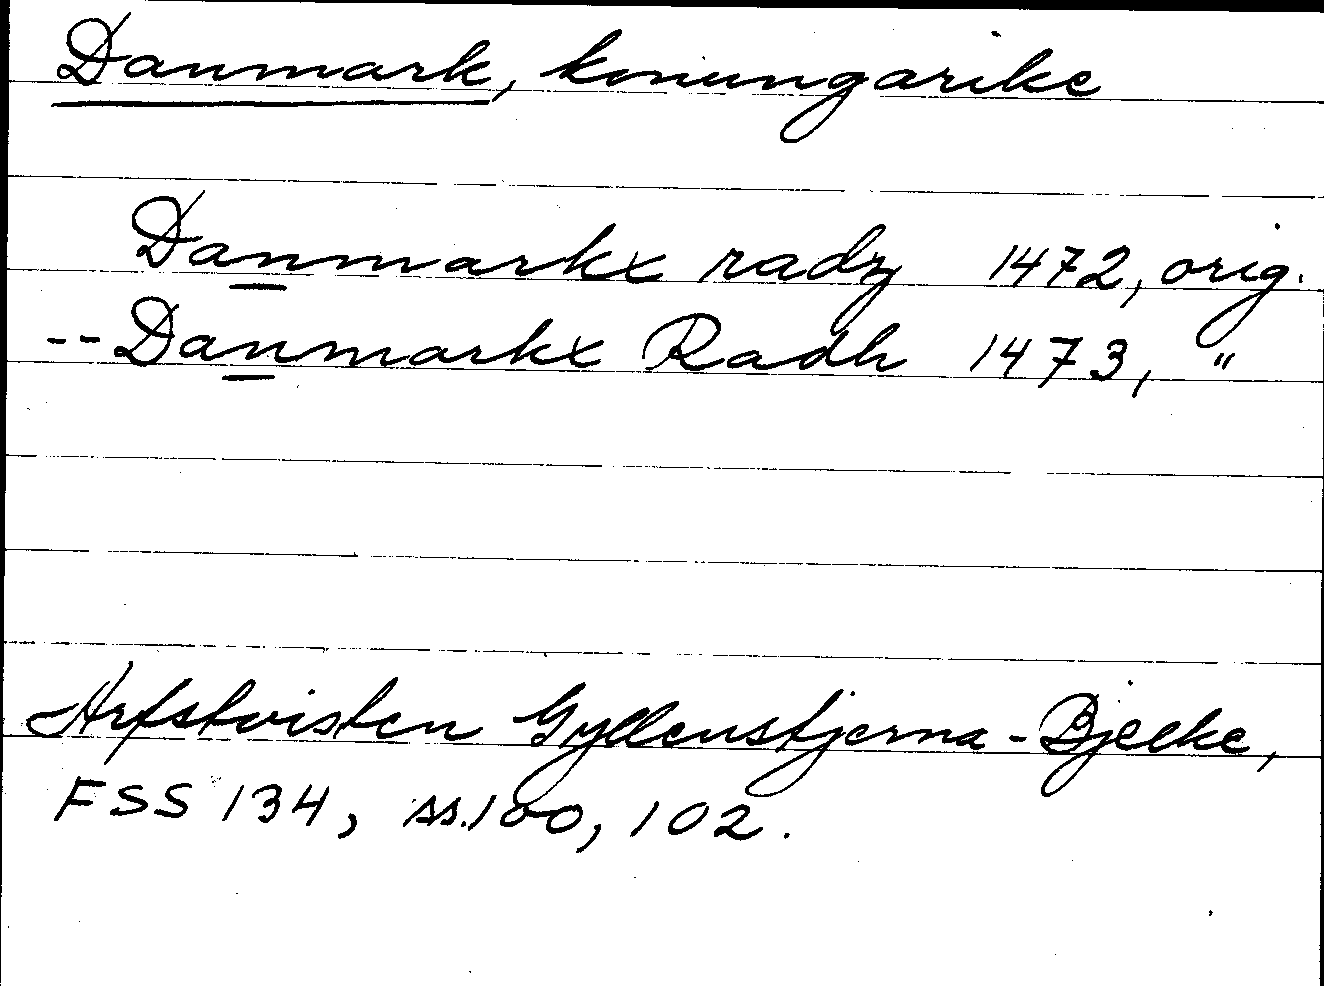 Danmark, konungarike
Danmarkx radz 1472, orig.
-- Danmarkx Radh 1473, "
Arfstvisten Gyllenstjerna-Bjelke,
FSS 134, ss. 100, 102.